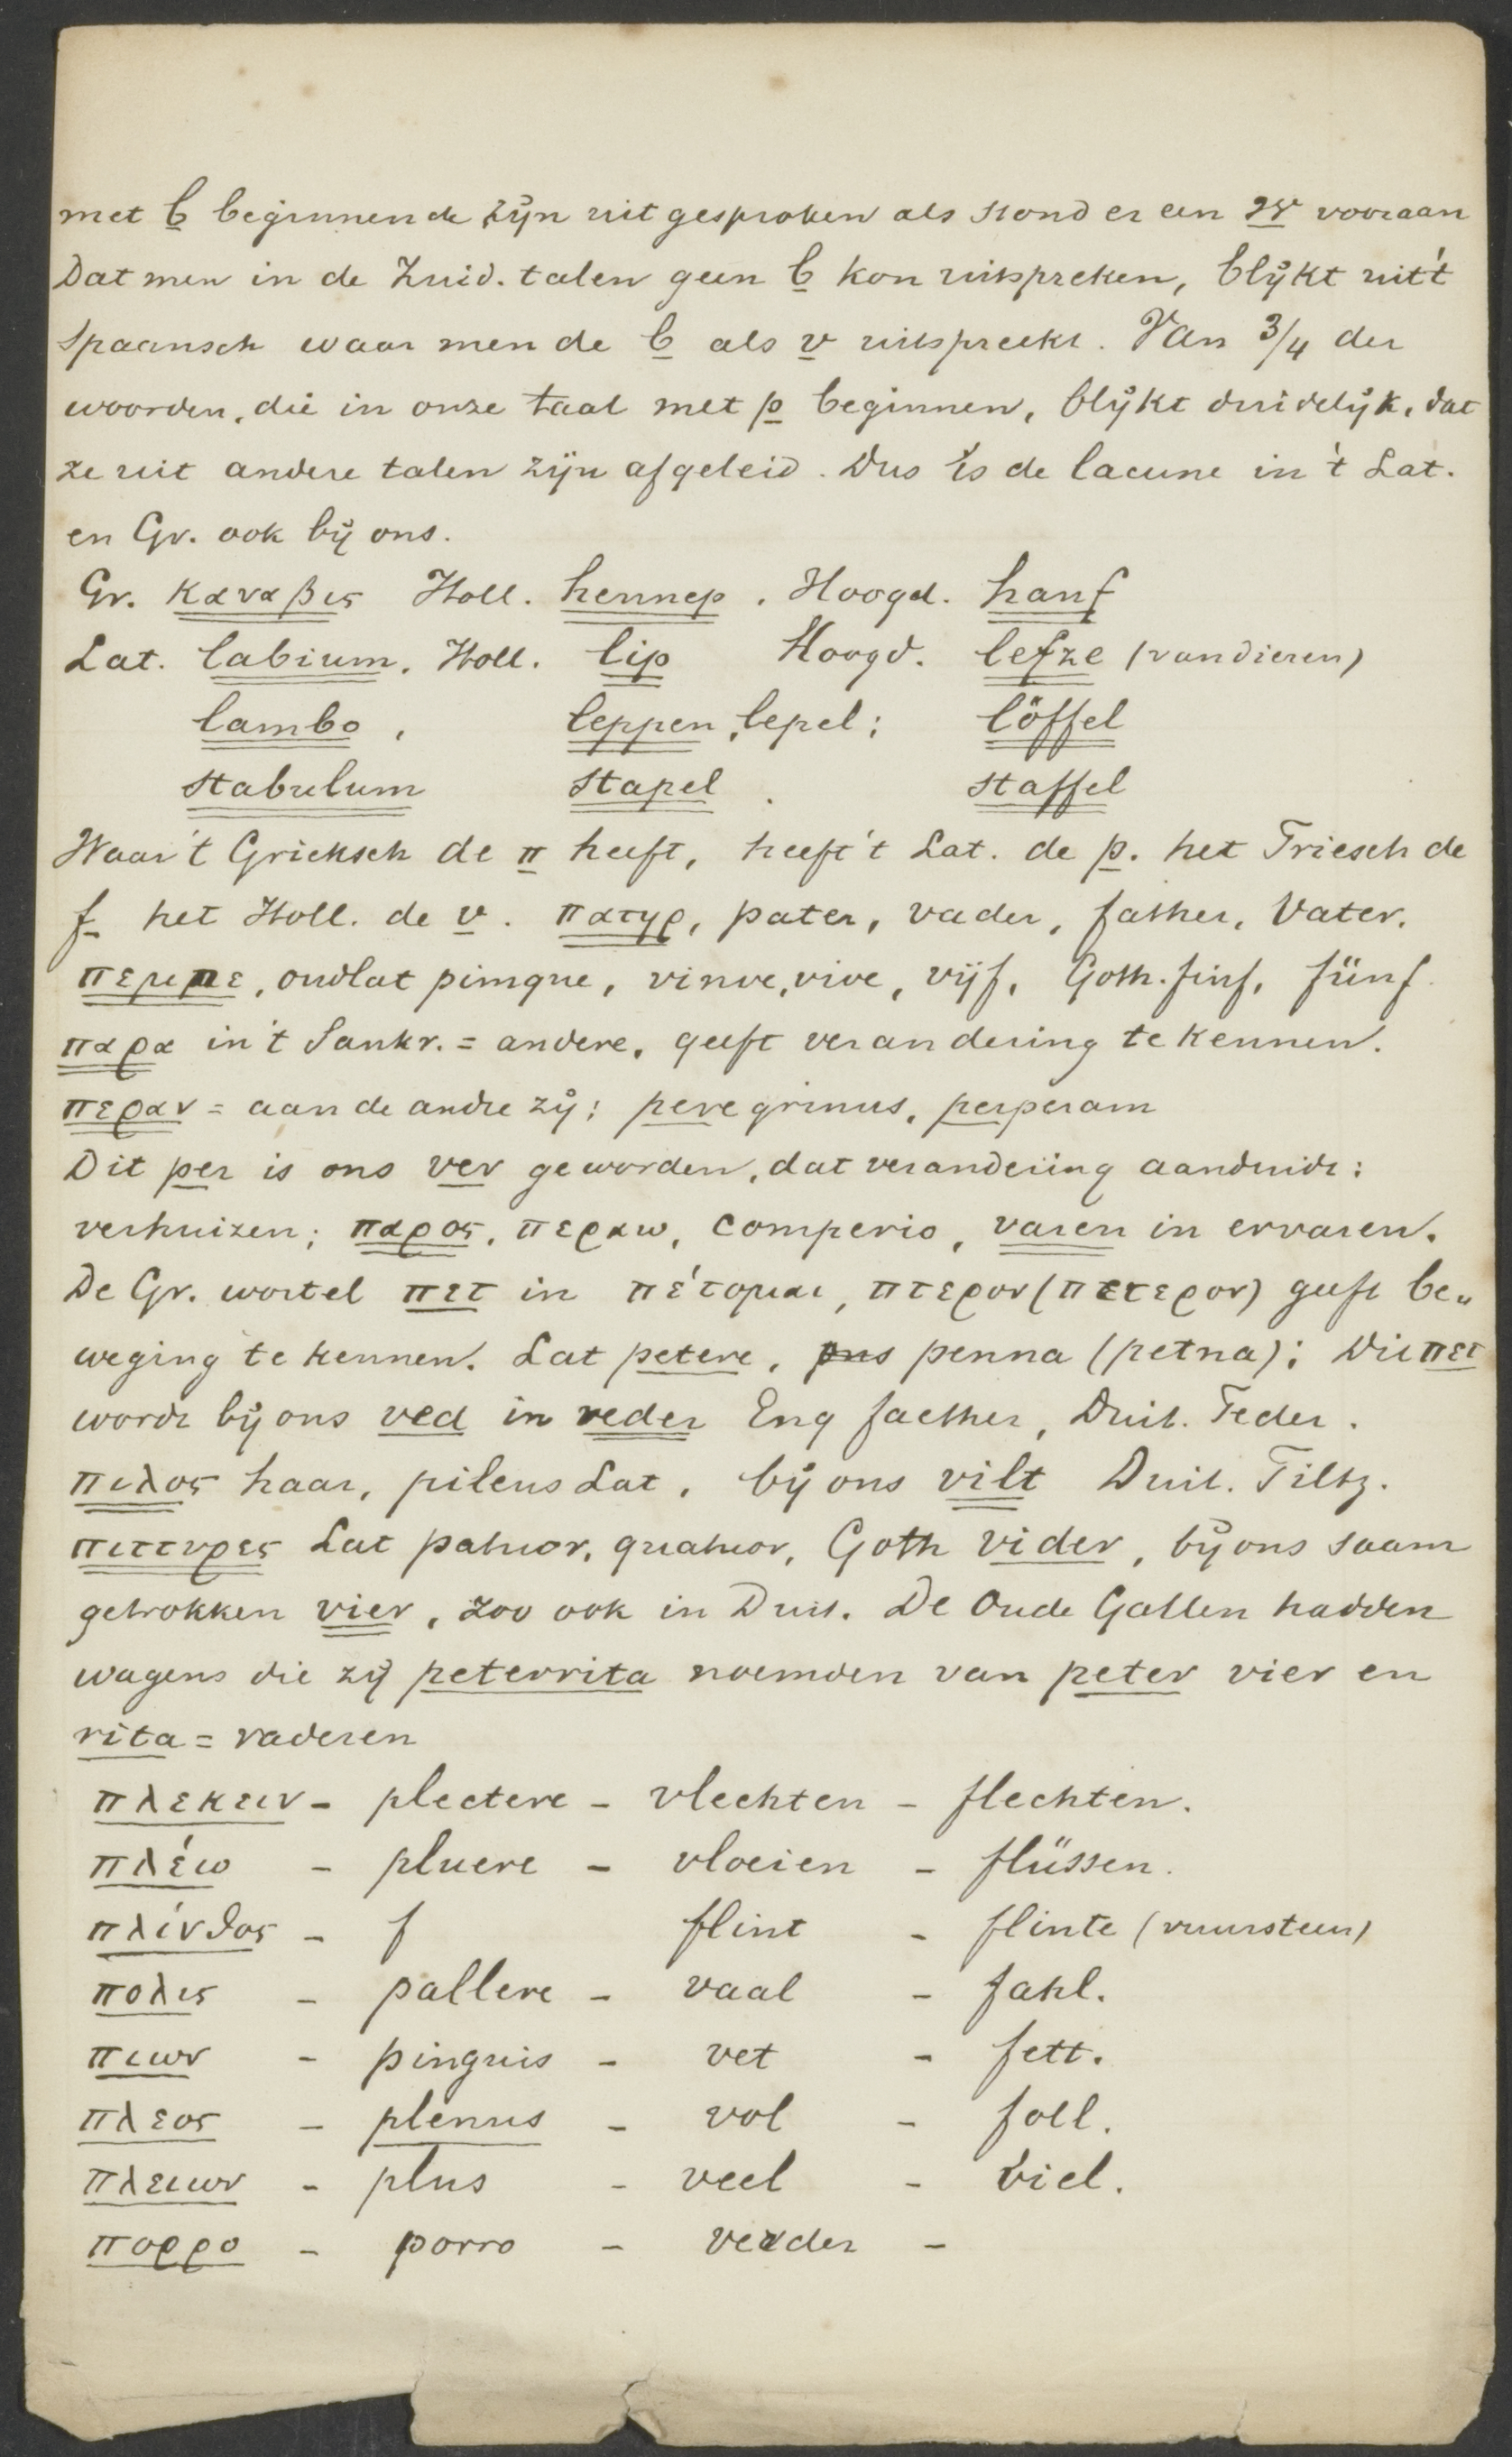 met b beginnende zijn uitgesproken als stond er een w vooraan
Dat men in de Zuid. talen geen b kon uitspreken, blijkt uit 't
Spaansch waar men de b als v uitspreekt. Van 3/4 der
woorden, die in onze taal met p beginnen, blijkt duidelijk, dat
ze uit andere talen zijn afgeleid. Dus is de lacune in 't Lat.
en Gr. ook bij ons.
Gr. καναβις Holl. hennep. Hoogd. hanf
Lat. labium. Holl. lip Hoogd. lefze (van dieren)
lambo, leppen, lepel; löffel
stabulum stapel. staffel
Waar 't Grieksch de π heeft, heeft 't Lat. de p. het Friesch de
f het Holl. de v. πατηρ, pater, vader, father, Vater.
πεμπε, oudlat pimque, vinve, vive, vijf, Goth. finf, fünf.
παρα in 't Sankr. = andere, geeft verandering te kennen.
περαν = aan de andre zij; peregrinus, perperam
Dit per is ons ver geworden, dat verandering aanduidt:
verhuizen; παρος, περαω, comperio, varen in ervaren.
De Gr. wortel πετ in πέτομαι, πτερον (πετερον) geeft be„
weging te kennen. Lat petere, pns penna (petna); Dit πετ
wordt bij ons ved in veder Eng faether, Duit. Feder.
πιλος haar, pileus Lat, bij ons vilt Duit. Filtz.
πιττυρες Lat patuor, quatuor, Goth vider, bij ons saam
getrokken vier, zoo ook in Duit. De Oude Gallen hadden
wagens die zij peterrita noemden van peter vier en
rita = raderen
πλεκειν - plectere - vlechten - flechten.
πλέω - pluere - vloeien - flüssen.
πλίνθος - f flint - flinte (vuursteen)
πολις - pallere - vaal - fahl.
πιων - pinguis - vet - fett.
πλεος - plenus - vol - foll.
πλειων - plus - veel - viel.
πορρο - porro - verder -